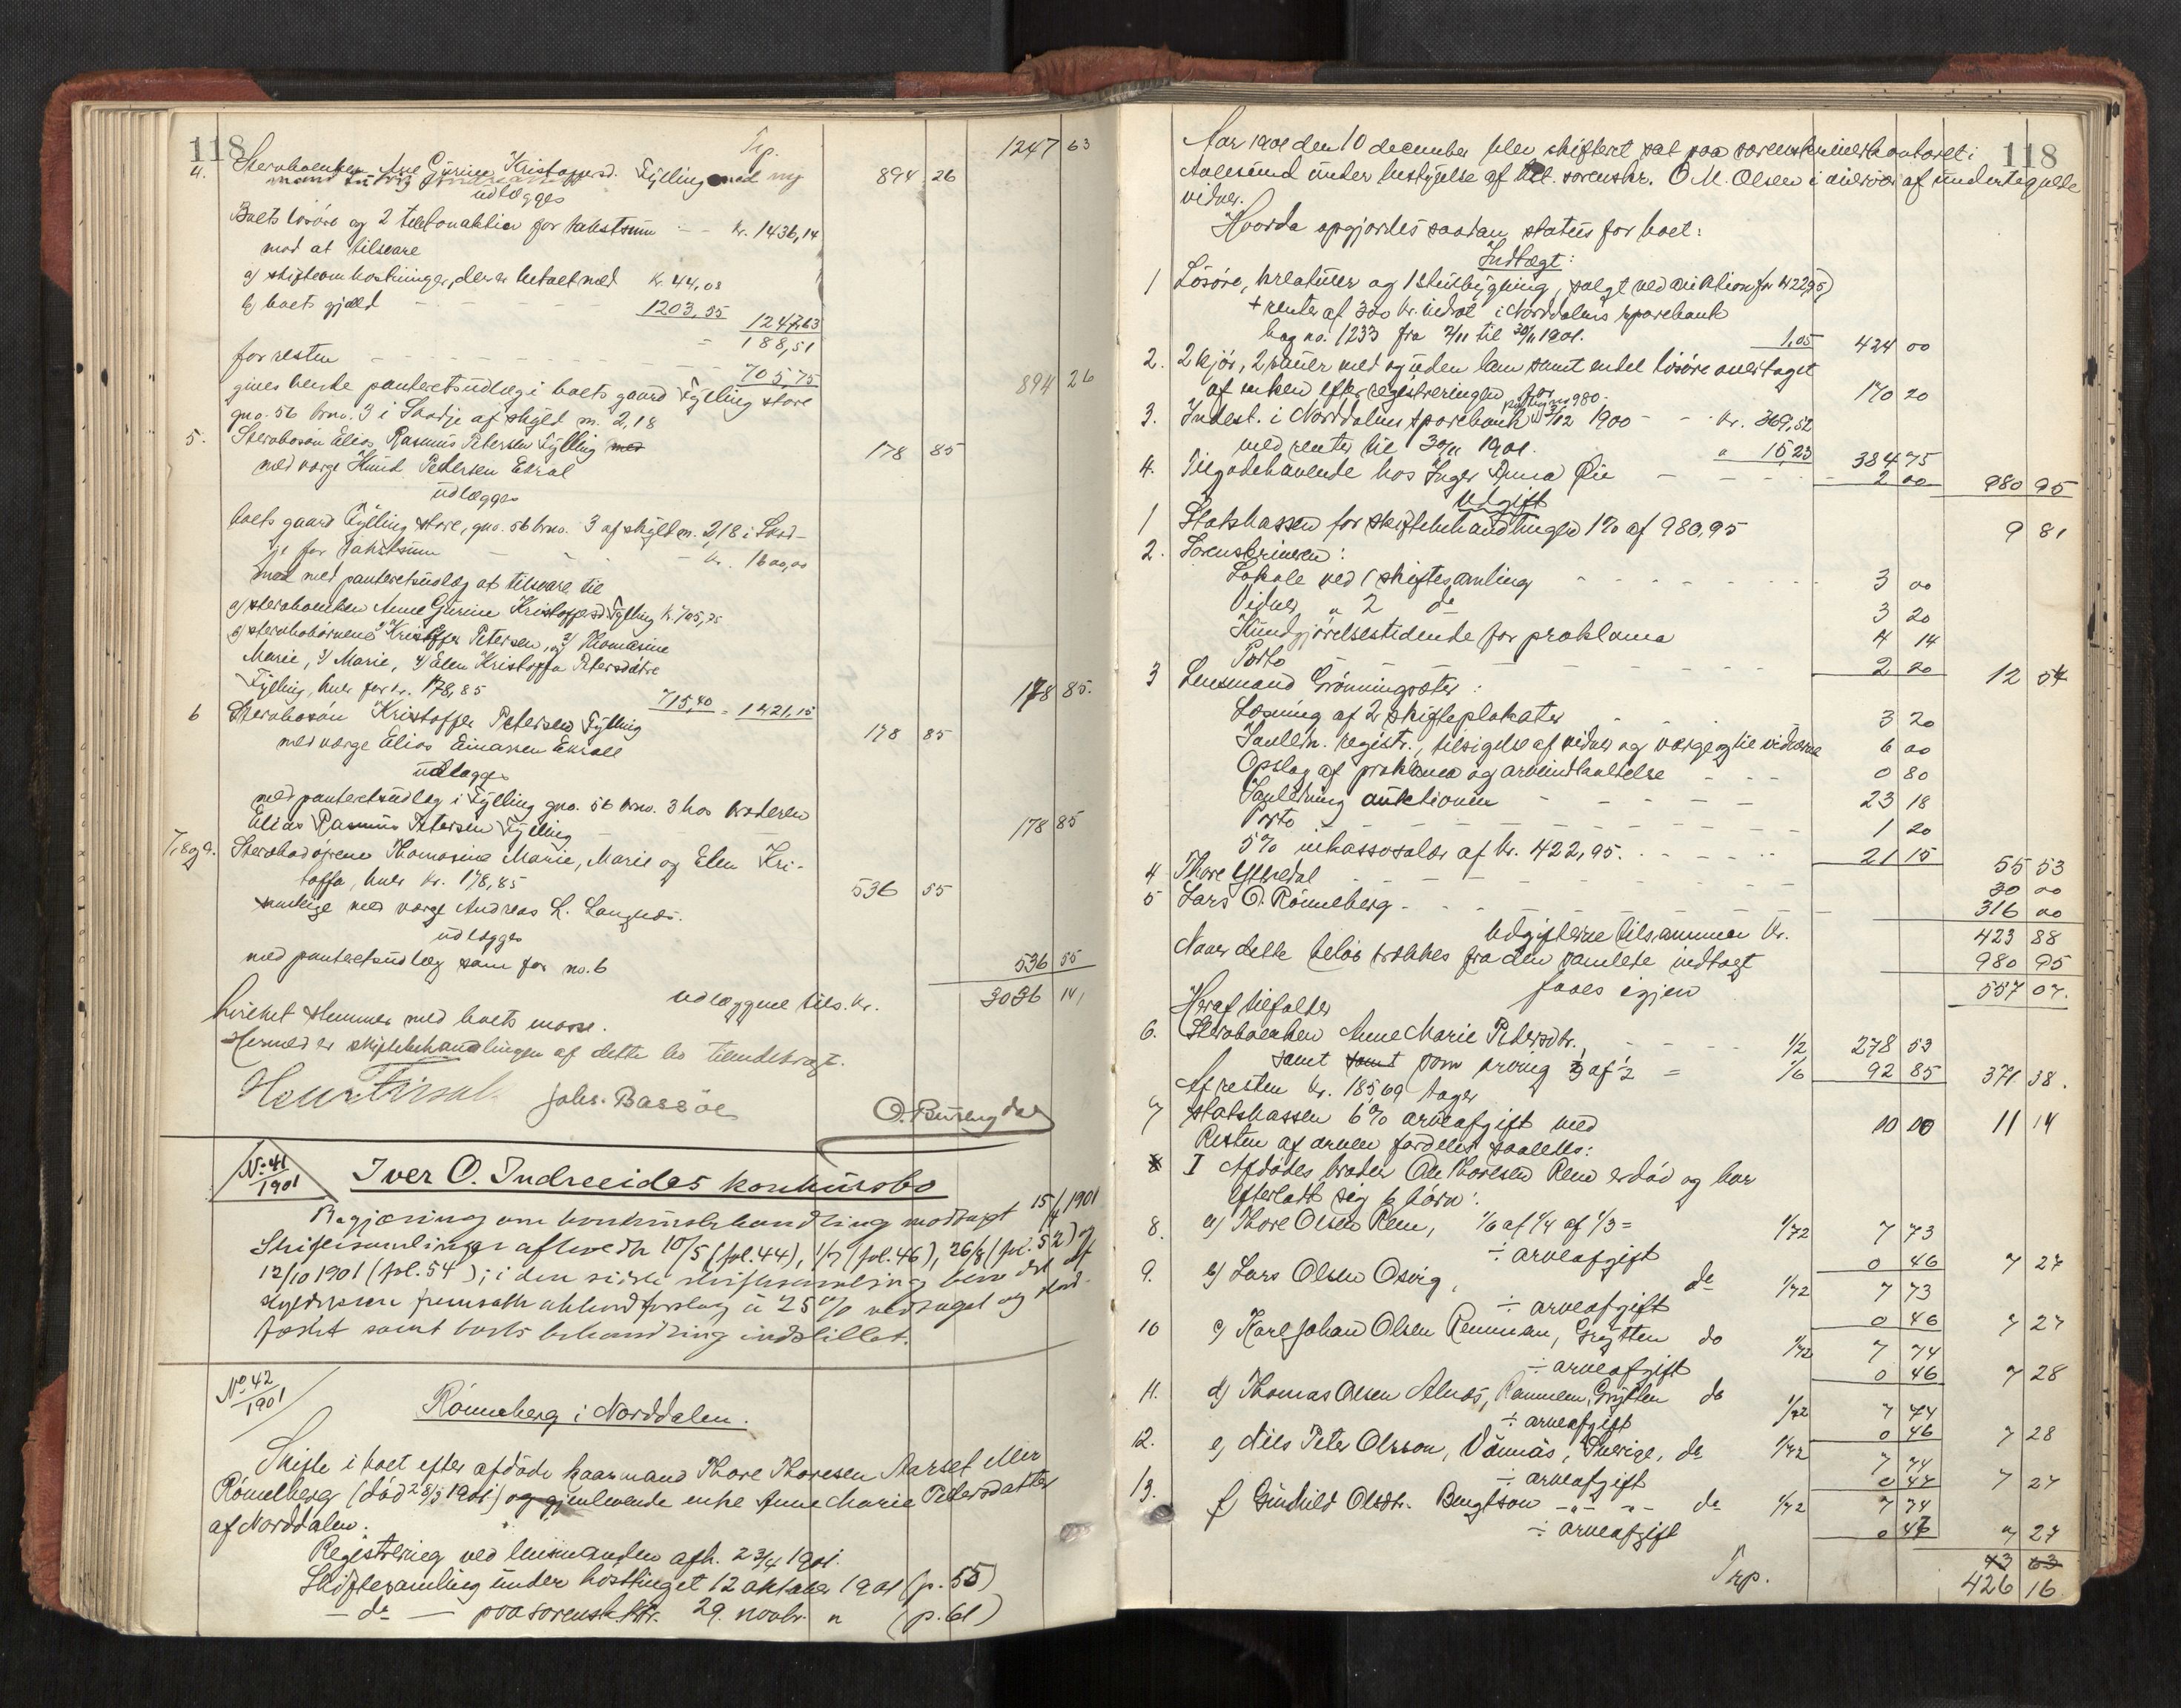 118
Trp. 1247 63
4. Stervboenken Ane Gurine Kristoffersd. Fylling med ny 894 26
udlægges
Boets løsøre og 2 telefonaktier for takstsum - - kr. 1436,14
mod at tilsvare
a) skifteomkostninger, der er betalt med kr. 44,08
b) boets gjæld - - - 1203,55 1247,63
188,51
for resten - - - - 705,75
gives hende panteretsudlæg i boets gaard Fylling store 894 26
gno. 56 brno. 3 i Skodje af skyld m. 2,18
5. Sterbosøn Elias Rasmus Petersen Fylling 178 85
med værge Knud Pedersen Ekral
udlægges
boets gaard Fylling store, gno. 56 brno. 3 af skyld m. 2,18 i Skod-
je for takstsum - - - kr. 1600,00
mod med panteretsudlæg at tilsvare til
a) sterboenken Anne Gurine Kristoffersd. Fylling kr. 705,75
b) sterbobørnene 1) Kristoffer Petersen, 2) Thomasine
Marie, 3) Marie, 4) Elen Kristoffa Petersdøtre
Fylling, hver for kr. 178,85 715,40 = 1421,15 178 85.
6 Sterbosøn Kristoffer Petersen Fylling 178 85
med værge Elias Einarsen Ekrol
udlægges
med panteretsudlæg i Fylling gno. 56 brno. 3 hos broderen
Elias Rasmus Petersen Fylling 178 85
7, 8 og 9. Sterbodøtrene Thomasine Marie, Marie og Elen Kri-
toffa, hver kr. 178,85 536 55
samtlige med værge Andreas L. Langnæs.
udlægges
med panteretsudlæg som for no. 6 536 55
udlæggene tils. kr. 3036 14
hvilket stemmer med boets masse.
Hermed er skiftebehandlingen af dette bo tilendebragt.
Johs. Bassøe
No. 41
1901
Iver O. Indreeides konkursbo
Begjæring om konkursbehandling modtagt 15/4 1901
Skiftesamlinger afholdt 10/5 (fol. 44), 1/7 (fol. 46), 26/8 (fol. 52) og
12/10 1901 (fol. 54); i den sidste skiftesamling blev det af
skyldneren fremsatte akkordforslag à 25 % vedtaget og stad-
fæstet samt boets behandling indstillet.
No. 42
1901
Rønneberg i Norddalen.
Skifte i boet efter afdøde gaarmand Thore Thoresen Aarset eller
Rønneberg (død 28/3 1901) og gjenlevende enke Anne Marie Petersdatter
af Norddalen.
Registrering ved lensmanden afh. 23/4 1901.
Skiftesamling under høsttinget 12 oktober 1901 (p. 55)
- do - paa sorenskr.ktr. 29. novbr. " (p. 61)
118
Aar 1901 den 10 december blev skifteret sat paa sorenskriverkontoret i
Aalesund under bestyrelse af sorenskr. O. M. Olsen i overvær af undertegnede
vidner.
Hvorda opgjordes saadan status for boet:
Indtægt:
1 Løsøre, kreaturer og 1 stuebygning, solgt ved auktion for kr. 422,95
+ renter af 300 kr. indsat i Norddalens sparebank
bog no. 1233 fra 2/11 til 30/11 1901. 1,05 424 00
2. 2 kjør, 2 sauer med og uden lam samt endel løsøre overtaget
af enken efter registreringen for 170 20
3. Indest. i Norddalens sparebank 1900 - - kr. 369,52
med renter til 30/11 1901. " 15,23 384 75
4. Tilgodehavende hos Inger Anna Øie - - - - 2 00 980 95
Udgift
1 Statskassen for skiftebehandlingen 1% af 980,95 9 81
2. Sorenskriveren:
Lokale ved 1 skiftesamling - - - 3 00
Vidner " 2 do 3 20
Kundgjørelsestidende for proklama 4 14
Porto - - - 2 20 12 54
3 Lensmand Grønningsæter:
Læsning af 2 skifteplakater 3 20
Forretn. registr., tilsigelse af vidner og værge og til vidnerne 6 00
Opslag af proklama og arveindkaldelse - - - 0 80
Forretning auktionen - - - 23 18
Porto - - - 1 20
5% inkassosalær af kr. 422,95. - - - 21 15 55 53
4 Thore Ytredal - - - 30 00
5 Lars O. Rønneberg - - - 316 00
Udgifterne tilsammen kr. 423 88
Naar dette beløb trækkes fra den samlede indtægt 980 95
faaes igjen 557 07.
Heraf tilfalder
6. Sterboenken Anne Marie Petersdtr., - - - 1/2 278 53
samt som arving 1/3 af 1/2 = 1/6 92 85 371 38.
Af resten kr. 185,69 tager
7 Statskassen 6% arveafgift med 00 00 11 14
Resten af arven fordeles saaledes:
I Afdødes broder Ole Thoresen Rem er død og har
efterladt sig 6 børn:
8. a) Thore Olsen Rem, 1/6 af 1/4 af 1/3 = 1/72 7 73
÷ arveafgift 0 46 7 27
9. b) Lars Olsen Osvig, do 1/72 7 73
÷ arveafgift 0 46 7 27
10 c) Karl Johan Olsen Remman, Grytten do 1/72 7 74
÷ arveafgift 0 46 7 28
11. d) Thomas Olsen Alnæs, Grytten do 1/72 7 74
÷ arveafgift 0 46 7 28
12. e) Nils Peter Olsson, Vännäs, Sverige, do 1/72 7 74
÷ arveafgift 0 47 7 27
13. f) Gunhild Olsdtr. Bengtson - " - do 1/72 7 74
÷ arveafgift 0 47 7 27
43 63
Trp. 426 16